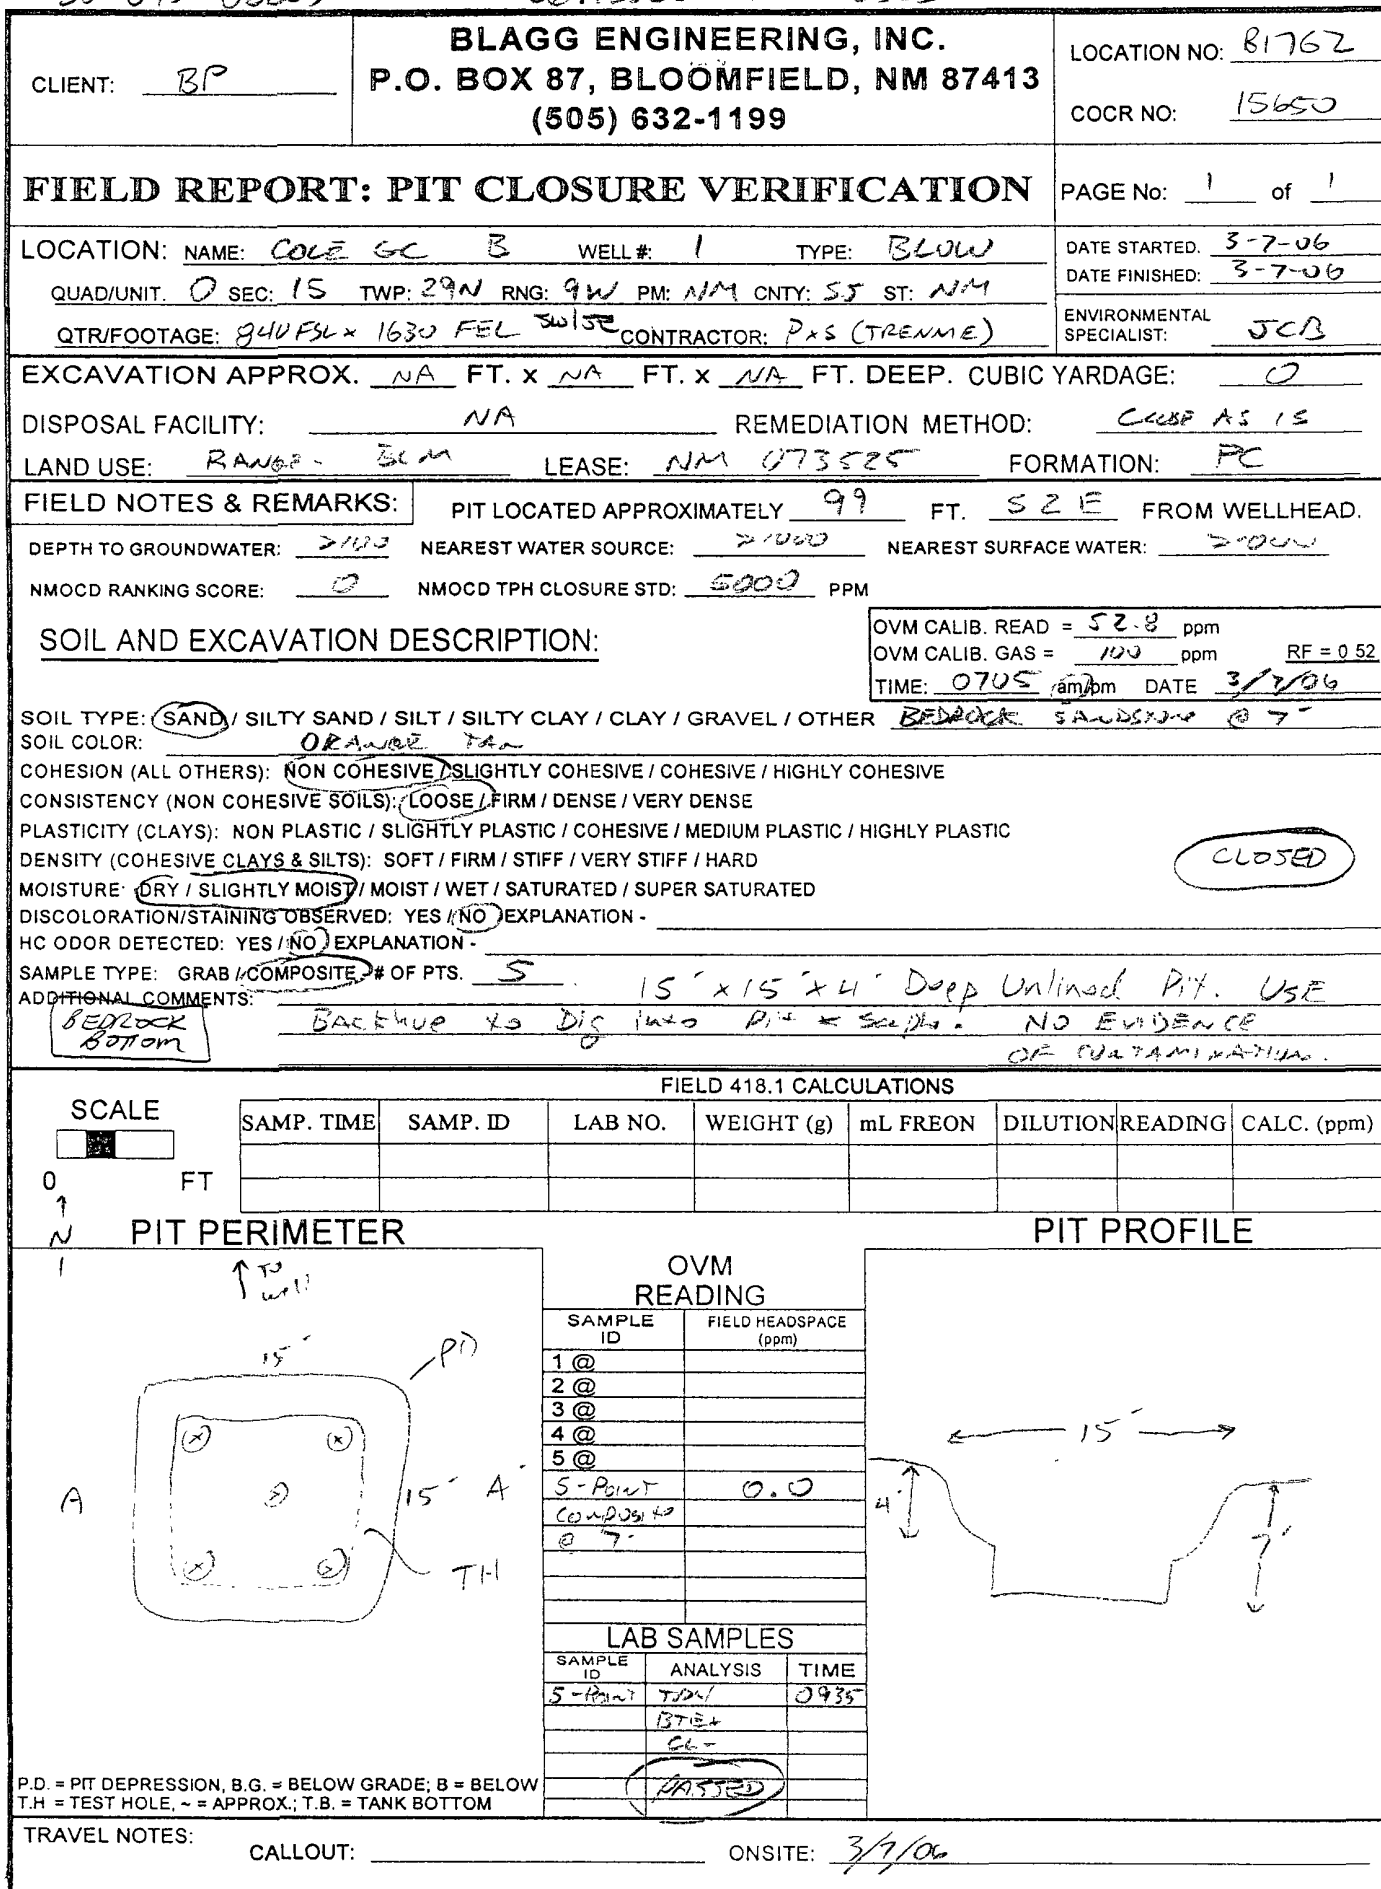 BLAGG ENGINEERING, INC.
P.O. BOX 87, BLOOMFIELD, NM 87413
(505) 632-1199
CLIENT: BP
LOCATION NO: B1762
COCR NO: 15650
FIELD REPORT: PIT CLOSURE VERIFICATION
PAGE No: 1 of 1
LOCATION: NAME: COLE GC B WELL #: 1 TYPE: BLOW
DATE STARTED. 3-7-06
DATE FINISHED: 3-7-06
QUAD/UNIT. O SEC: 15 TWP: 29N RNG: 9W PM: NM CNTY: SJ ST: NM
QTR/FOOTAGE: 840 FSL x 1630 FEL SW/SE CONTRACTOR: P+S (TRENME)
ENVIRONMENTAL
SPECIALIST: JCB
EXCAVATION APPROX. NA FT. x NA FT. x NA FT. DEEP. CUBIC YARDAGE: 0
DISPOSAL FACILITY: NA REMEDIATION METHOD: CLOSE AS IS
LAND USE: RANGE - BLM LEASE: NM 073525 FORMATION: PC
FIELD NOTES & REMARKS: PIT LOCATED APPROXIMATELY 99 FT. S2E FROM WELLHEAD.
DEPTH TO GROUNDWATER: >100 NEAREST WATER SOURCE: >1000 NEAREST SURFACE WATER: >1000
NMOCD RANKING SCORE: 0 NMOCD TPH CLOSURE STD: 5000 PPM
SOIL AND EXCAVATION DESCRIPTION:
OVM CALIB. READ = 52.8 ppm
OVM CALIB. GAS = 100 ppm RF = 0 52
TIME: 0705 am/pm DATE 3/7/06
SOIL TYPE: SAND / SILTY SAND / SILT / SILTY CLAY / CLAY / GRAVEL / OTHER BEDROCK SANDSTONE @ 7'
SOIL COLOR: ORANGE TAN
COHESION (ALL OTHERS): NON COHESIVE / SLIGHTLY COHESIVE / COHESIVE / HIGHLY COHESIVE
CONSISTENCY (NON COHESIVE SOILS): LOOSE / FIRM / DENSE / VERY DENSE
PLASTICITY (CLAYS): NON PLASTIC / SLIGHTLY PLASTIC / COHESIVE / MEDIUM PLASTIC / HIGHLY PLASTIC
DENSITY (COHESIVE CLAYS & SILTS): SOFT / FIRM / STIFF / VERY STIFF / HARD
CLOSED
MOISTURE: DRY / SLIGHTLY MOIST / MOIST / WET / SATURATED / SUPER SATURATED
DISCOLORATION/STAINING OBSERVED: YES / NO EXPLANATION -
HC ODOR DETECTED: YES / NO EXPLANATION -
SAMPLE TYPE: GRAB / COMPOSITE # OF PTS. 5
ADDITIONAL COMMENTS: 15' x 15' x 4' Deep Unlined Pit. USE
BEDROCK
BOTTOM
Backhoe to Dig into Pit & Sample. NO EVIDENCE
OF CONTAMINATION.
FIELD 418.1 CALCULATIONS
SCALE
0 FT
SAMP. TIME SAMP. ID LAB NO. WEIGHT (g) mL FREON DILUTION READING CALC. (ppm)
N
PIT PERIMETER
PIT PROFILE
TO
well
15'
PD
A
15'
A'
TH
OVM
READING
SAMPLE
ID
FIELD HEADSPACE
(ppm)
1 @
2 @
3 @
4 @
5 @
5-Point 0.0
Composite
@ 7'
15'
4'
7'
LAB SAMPLES
SAMPLE
ID
ANALYSIS TIME
5-Point TPH 0935
BTEX
CL-
PASSED
P.D. = PIT DEPRESSION, B.G. = BELOW GRADE; B = BELOW
T.H = TEST HOLE, ~ = APPROX.; T.B. = TANK BOTTOM
TRAVEL NOTES:
CALLOUT: ONSITE: 3/7/06